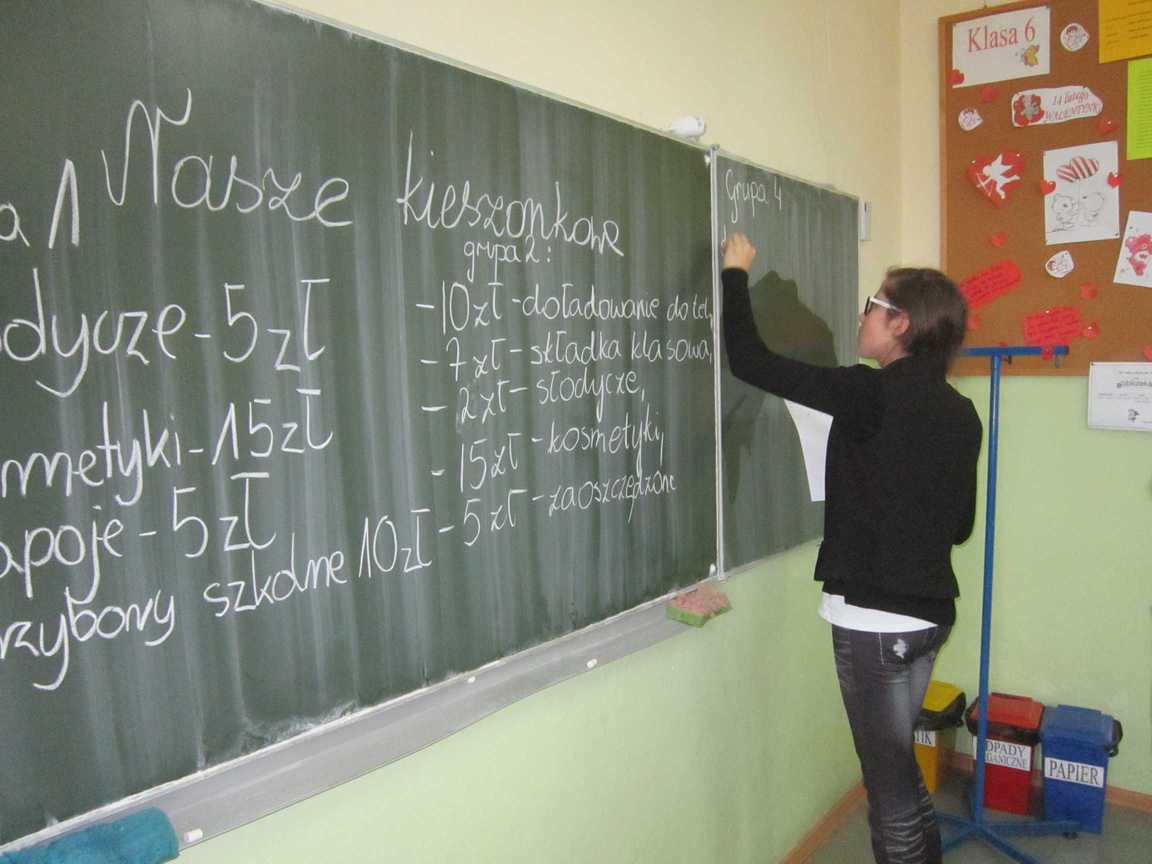 Nasze kieszonkowe
a 1
odycze - 5 zł
metyki - 15 zł
apoje - 5 zł
rzybory szkolne 10 zł
grupa 2:
- 10 zł - doładowanie do tel,
- 7 zł - składka klasowa,
- 2 zł - słodycze,
- 15 zł - kosmetyki,
- 5 zł - zaoszczędzone
Grupa 4
Klasa 6
14 lutego
WALENTYNKI
IK
ODPADY
GANICZNE
PAPIER